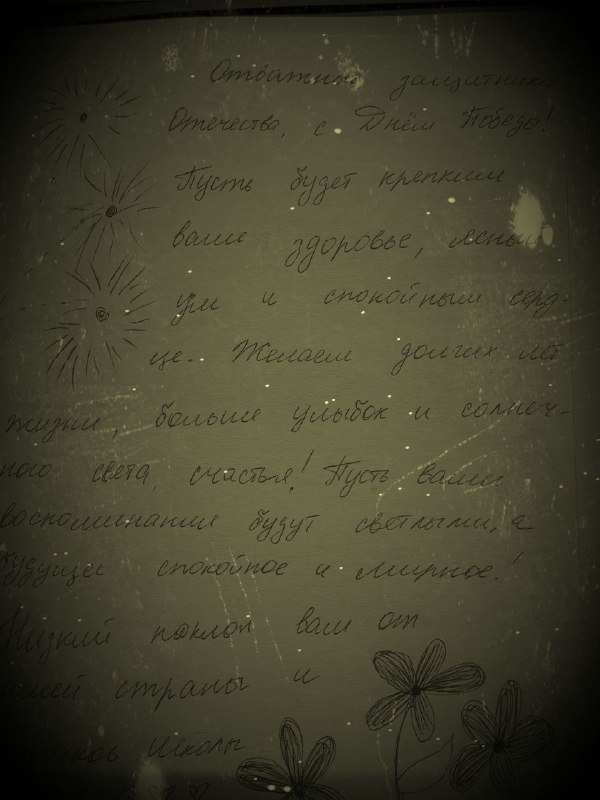 Отважные защитники
Отечества, с Днём Победы!
Пусть будет крепким
ваше здоровье, ясный
ум и спокойным серд-
це. Желаем долгих лет
жизни, больше улыбок и солнеч-
ного света, счастья! Пусть ваши
воспоминания будут светлыми, а
будущее спокойное и мирное!
Низкий поклон вам от
нашей страны и
школы